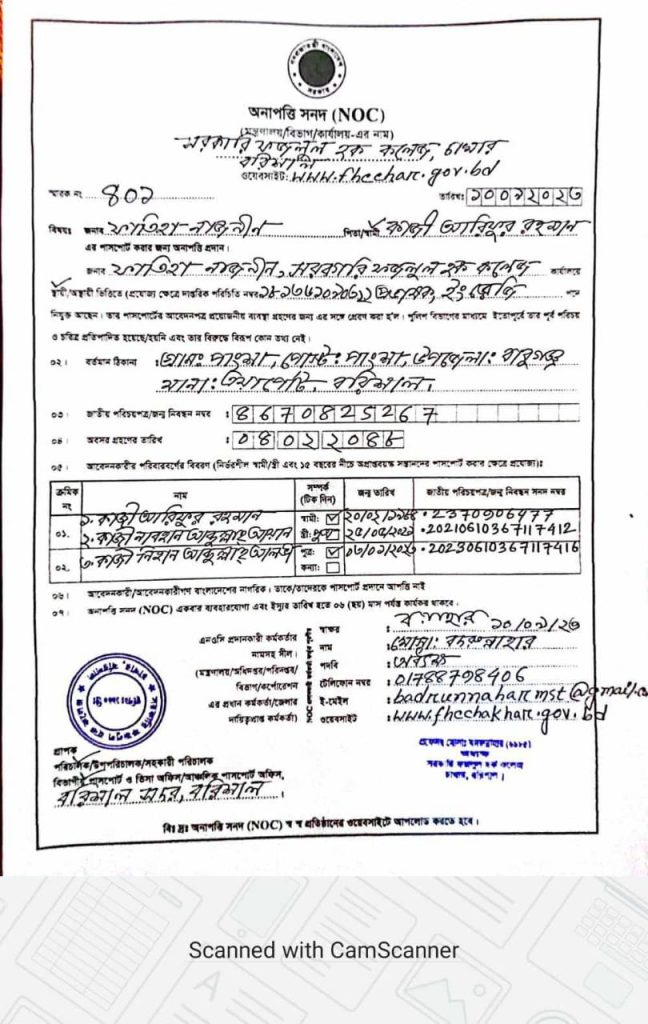 গণপ্রজাতন্ত্রী বাংলাদেশ সরকার
অনাপত্তি সনদ (NOC)
(মন্ত্রণালয়/বিভাগ/কার্যালয়-এর নাম)
সরকারি ফজলুল হক কলেজ, চাখার
বরিশাল
ওয়েবসাইট: www.fhcchak.gov.bd
স্মারক নং 401
তারিখঃ
বিষয়ঃ জনাব ফাতিহা নাজনীন পিতা/স্বামী কাজী আরিফুর রহমান
এর পাসপোর্ট করার জন্য অনাপত্তি প্রদান।
জনাব ফাতিহা নাজনীন, সরকারি ফজলুল হক কলেজ কার্যালয়ে
স্থায়ী/অস্থায়ী ভিত্তিতে (প্রযোজ্য ক্ষেত্রে দাপ্তরিক পরিচিতি নম্বর প্রভাষক, ইংরেজি পদে
নিযুক্ত আছেন। তার পাসপোর্টের আবেদনপত্র প্রয়োজনীয় ব্যবস্থা গ্রহণের জন্য এর সঙ্গে প্রেরণ করা হ'ল। পুলিশ বিভাগের মাধ্যমে ইতোপূর্বে তার পূর্ব পরিচয়
ও চরিত্র প্রতিপাদিত হয়েছে/হয়নি এবং তার বিরুদ্ধে বিরূপ কোন তথ্য নেই।
০২। বর্তমান ঠিকানা : গ্রাম: পাংশা, পোস্ট: পাংশা, উপজেলা: বাবুগঞ্জ
থানা: বরিশাল।
০৩। জাতীয় পরিচয়পত্র/জন্ম নিবন্ধন নম্বর : 8670825267
০৪। অবসর গ্রহণের তারিখ :
০৫। আবেদনকারীর পরিবারবর্গের বিবরণ (নির্ভরশীল স্বামী/স্ত্রী এবং ১৫ বছরের নীচে অপ্রাপ্তবয়স্ক সন্তানদের পাসপোর্ট করার ক্ষেত্রে প্রযোজ্য)ঃ
ক্রমিক নং নাম সম্পর্ক (টিক দিন) জন্ম তারিখ জাতীয় পরিচয়পত্র/জন্ম নিবন্ধন সনদ নম্বর
১. কাজী আরিফুর রহমান স্বামী: 2370906477
০১. ২. কাজী আব্দুল্লাহ স্ত্রী: পুত্র 20210610367117412
৩. কাজী আব্দুল্লাহ পুত্র: 20230610367117416
০২. কন্যা:
০৬। আবেদনকারী/আবেদনকারীগণ বাংলাদেশের নাগরিক। তাকে/তাদেরকে পাসপোর্ট প্রদানে আপত্তি নাই
০৭। অনাপত্তি সনদ (NOC) একবার ব্যবহারযোগ্য এবং ইস্যুর তারিখ হতে ০৬ (ছয়) মাস পর্যন্ত কার্যকর থাকবে।
এনওসি প্রদানকারী কর্মকর্তার
নামসহ সীল।
(মন্ত্রণালয়/অধিদপ্তর/পরিদপ্তর/
বিভাগ/কর্পোরেশন
এর প্রধান কর্মকর্তা/জেলার
দায়িত্বপ্রাপ্ত কর্মকর্তা)
স্বাক্ষর
নাম : মোসা: বদরুন্নাহার
পদবি : অধ্যক্ষ
টেলিফোন নম্বর : 01788798406
ই-মেইল : badrunnaharmst@gmail.co
ওয়েবসাইট : www.fhcchakhar.gov.bd
অধ্যক্ষ
সরকারি ফজলুল হক কলেজ
চাখার, বরিশাল।
প্রাপক
পরিচালক/উপপরিচালক/সহকারী পরিচালক
বিভাগীয় পাসপোর্ট ও ভিসা অফিস/আঞ্চলিক পাসপোর্ট অফিস,
বরিশাল সদর, বরিশাল।
বিঃ দ্রঃ অনাপত্তি সনদ (NOC) স্ব স্ব প্রতিষ্ঠানের ওয়েবসাইটে আপলোড করতে হবে।
Scanned with CamScanner